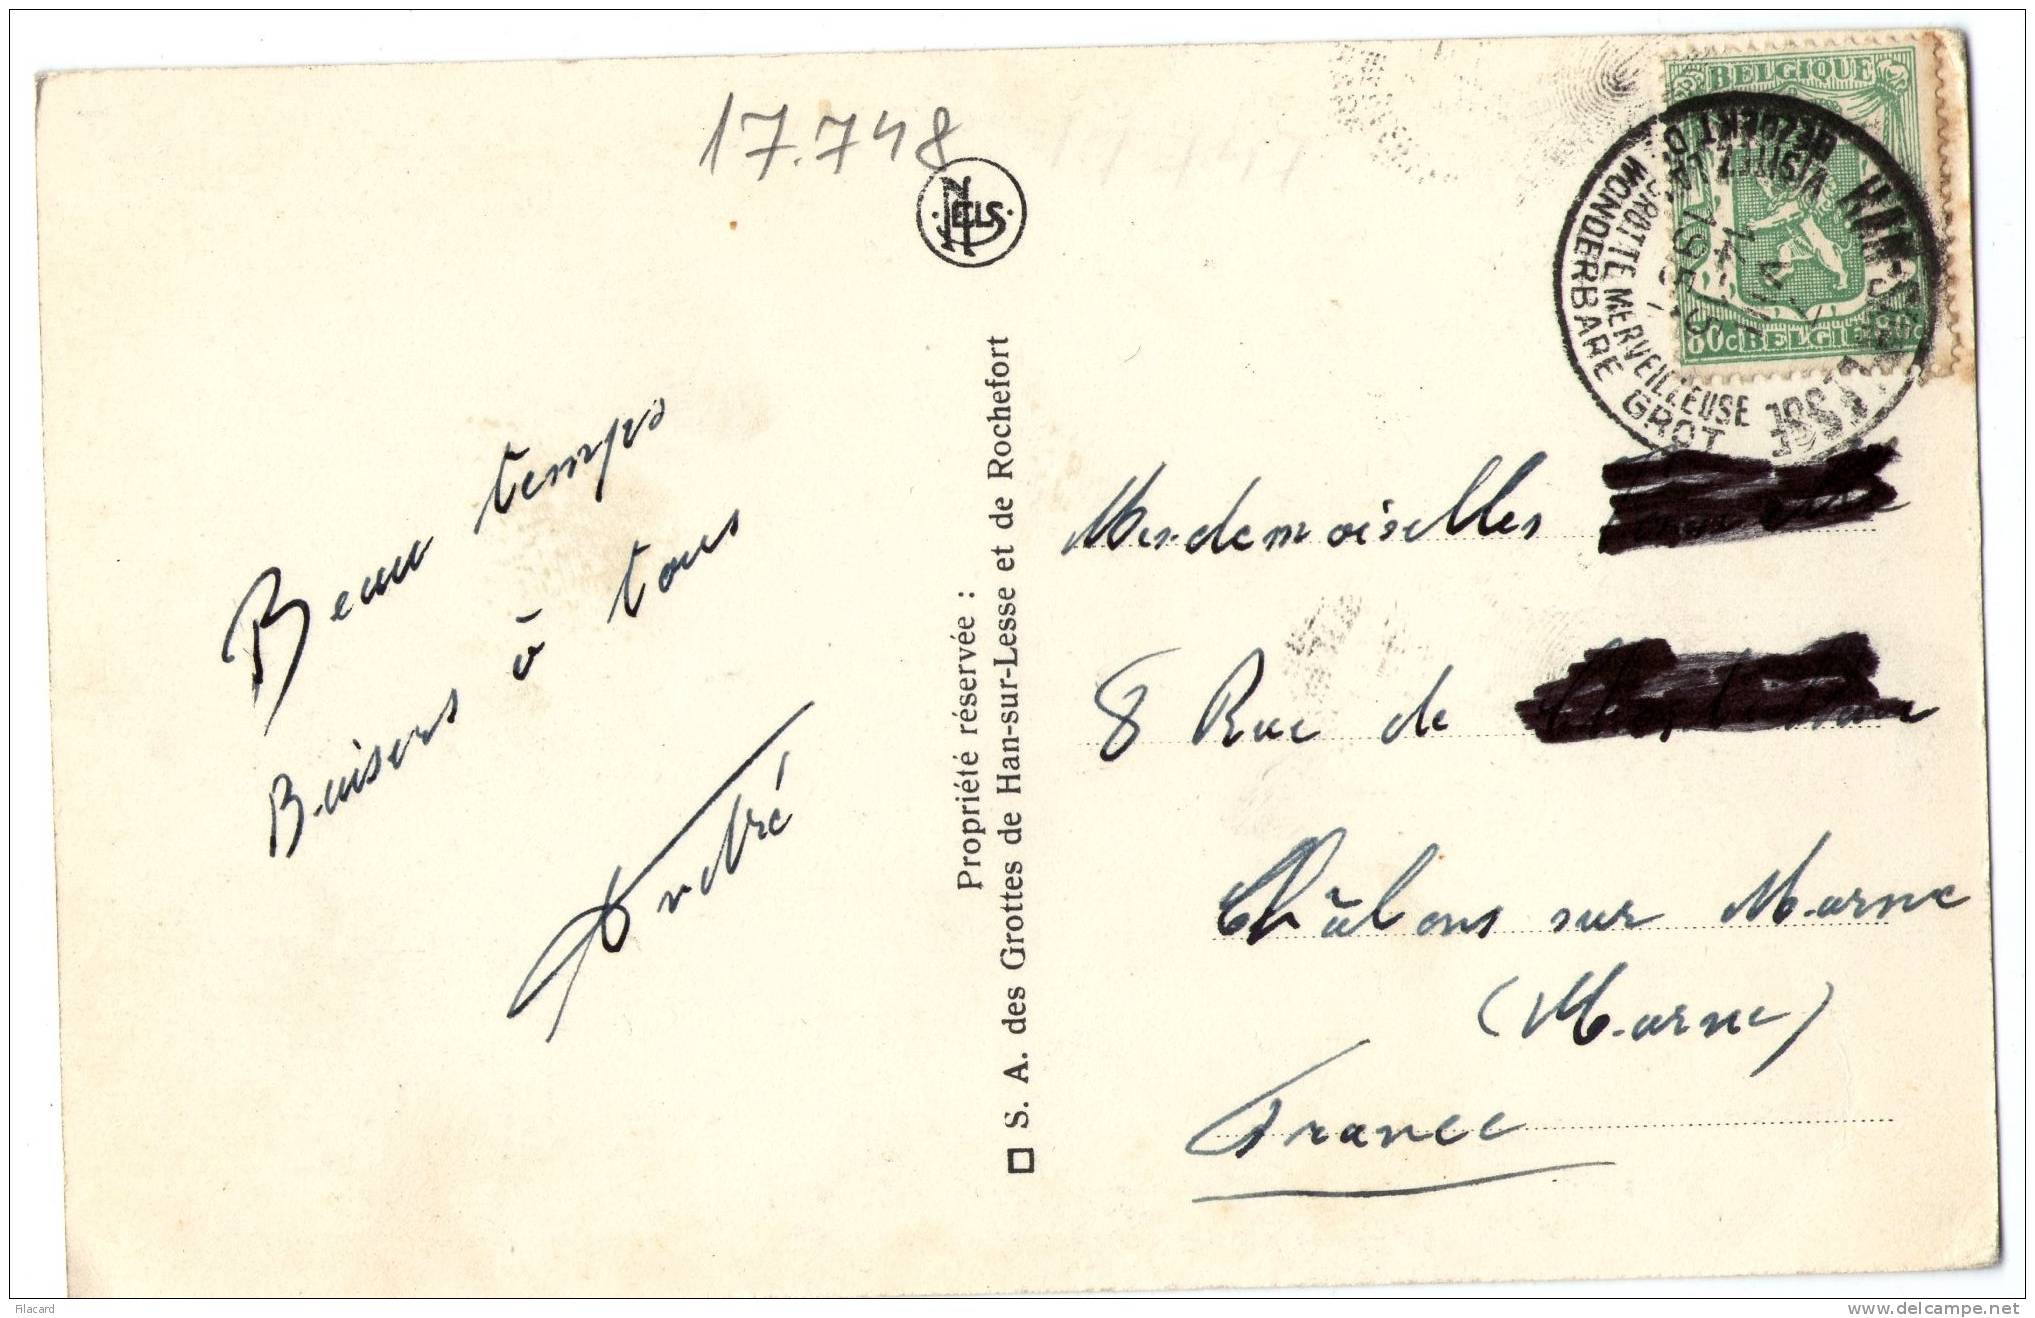 17.748
NELS
Beau temps
Baisers à tous
André
Propriété réservée :
S. A. des Grottes de Han-sur-Lesse et de Rochefort
BELGIQUE
BELGIE
HAN-SUR-LESSE
VISITEZ LA
GROTTE MERVEILLEUSE
BEZOEKT DE
WONDERBARE GROT
1951
Mesdemoiselles
8 Rue de
Châlons sur Marne
(Marne)
France
Filacard
www.delcampe.net